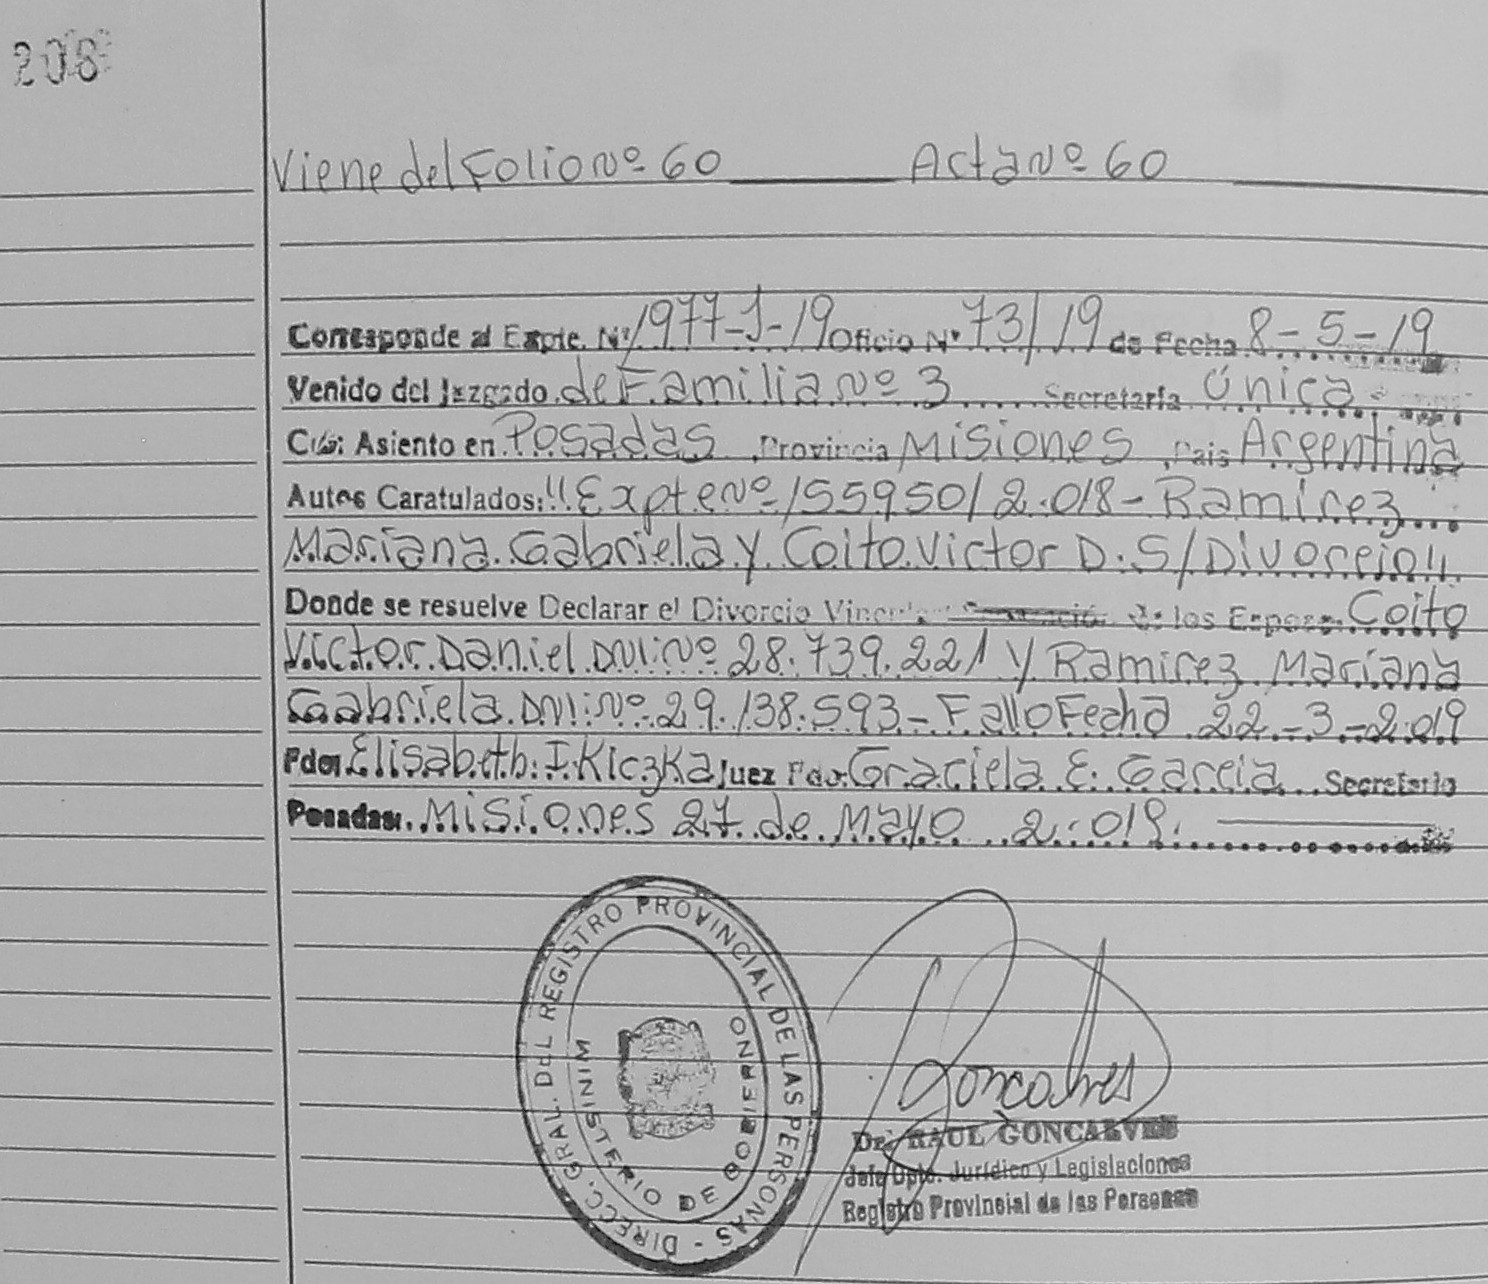 208
Viene del Folio Nº 60 Acta Nº 60
Corresponde al Expte. Nº 1977-J-19 Oficio Nº 73/19 de Fecha 8-5-19
Venido del Juzgado de Familia Nº 3 Secretaría Única
Con Asiento en Posadas Provincia Misiones País Argentina
Autos Caratulados: "Expte Nº 155950/2.018 - Ramirez
Mariana Gabriela y Coito Victor D. S/ Divorcio"
Donde se resuelve Declarar el Divorcio de los Coito
Victor Daniel DNI: Nº 28.739.221 y Ramirez Mariana
Gabriela DNI: Nº 29.138.593 - Fallo Fecha 22-3-2.019
Fdo: Elisabeth I. Kiczka Juez Fdo: Graciela E. Garcia Secretario
Posadas: Misiones 27 de Mayo 2.019.
DIRECC. GRAL. DEL REGISTRO PROVINCIAL DE LAS PERSONAS -
MINISTERIO DE GOBIERNO
Goncalves
Dr. RAUL GONCALVES
Jefe Dpto. Jurídico y Legislaciones
Registro Provincial de las Personas